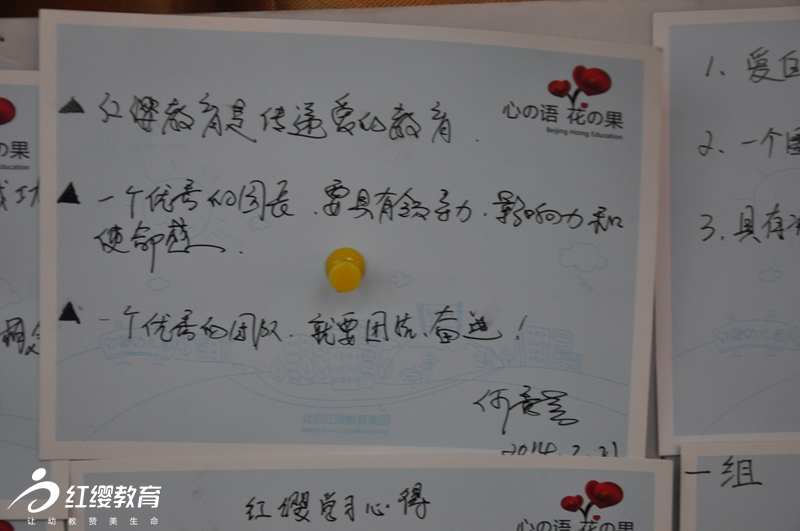 心の语 花の果
Beijing Hoing Education
▲ 红缨教育是传递爱的教育.
▲ 一个优秀的园长.要具有领导力.影响力和
使命感.
▲ 一个优秀的团队.就要团结.奋进!
2014.2.21
北京红缨教育集团
の果
Education
成功
1、爱自
2、一个
3、具有
红缨学习心得
心の语 花の果
一组
红缨教育
让幼教赞美生命